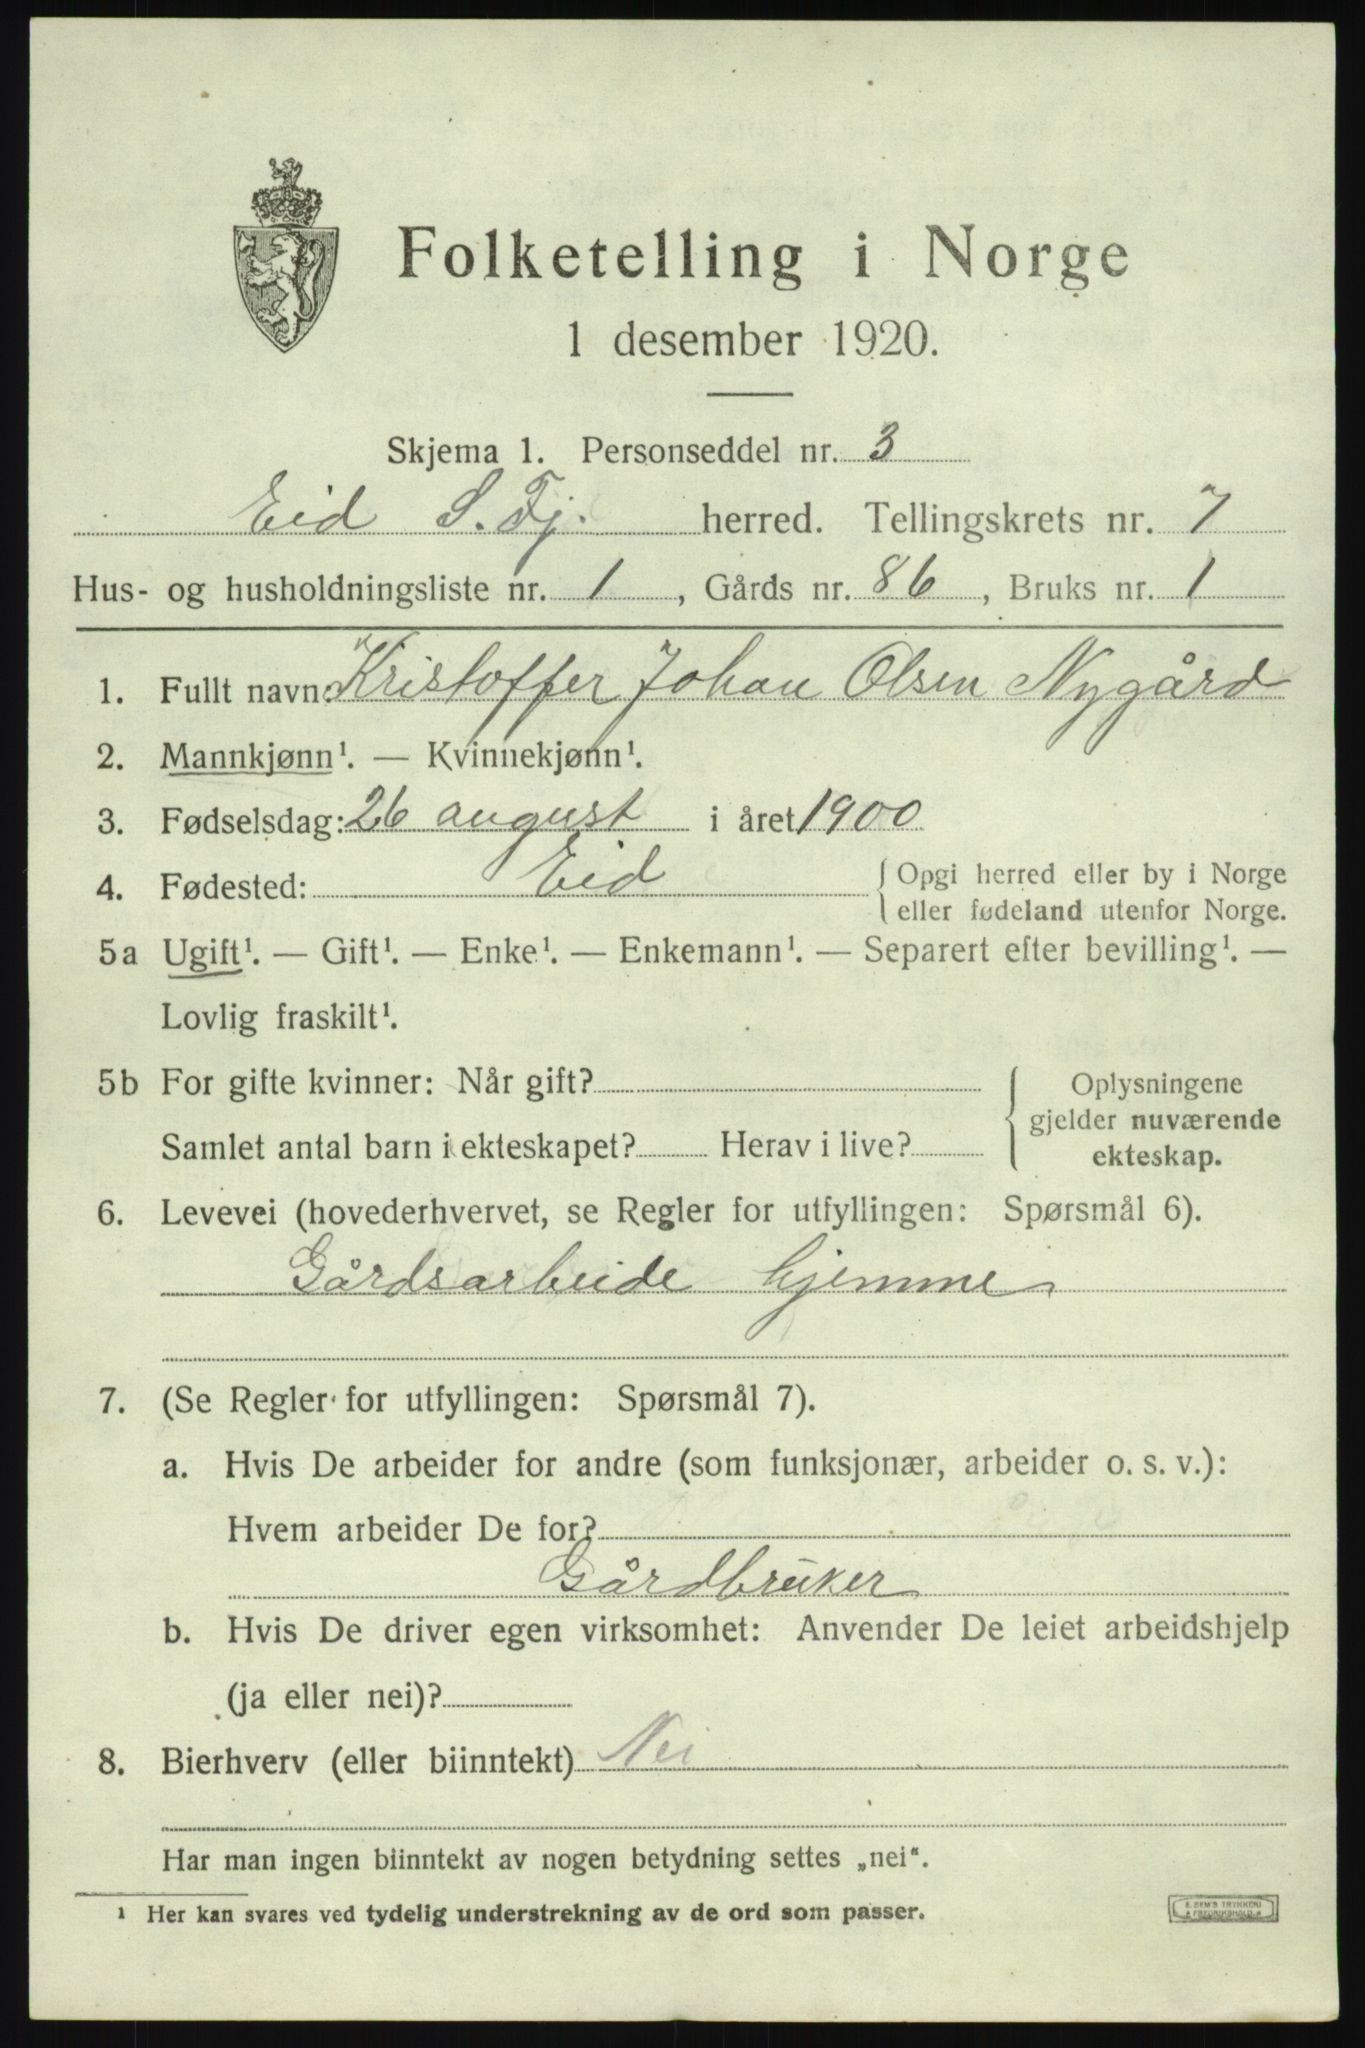 Folketelling i Norge
1 desember 1920.
Skjema 1. Personseddel nr. 3
Eid S. Fj. herred. Tellingskrets nr. 7
Hus- og husholdningsliste nr. 1, Gårds nr. 86, Bruks nr. 1
1. Fullt navn: Kristoffer Johan Olsen Nygård
2. Mannkjønn¹. — Kvinnekjønn¹.
3. Fødselsdag: 26 august i året 1900
4. Fødested: Eid { Opgi herred eller by i Norge
eller fødeland utenfor Norge.
5a Ugift¹. — Gift¹. — Enke¹. — Enkemann¹. — Separert efter bevilling¹. —
Lovlig fraskilt¹.
5b For gifte kvinner: Når gift? { Oplysningene
gjelder nuværende
Samlet antal barn i ekteskapet? Herav i live?
ekteskap.
6. Levevei (hovederhvervet, se Regler for utfyllingen: Spørsmål 6).
Gårdsarbeide hjemme
7. (Se Regler for utfyllingen: Spørsmål 7).
a. Hvis De arbeider for andre (som funksjonær, arbeider o. s. v.):
Hvem arbeider De for?
Gårdbruker
b. Hvis De driver egen virksomhet: Anvender De leiet arbeidshjelp
(ja eller nei)?
8. Bierhverv (eller biinntekt) Nei
Har man ingen biinntekt av nogen betydning settes „nei“.
¹ Her kan svares ved tydelig understrekning av de ord som passer.
E. SEM'S TRYKKERI
FREDRIKSHALD